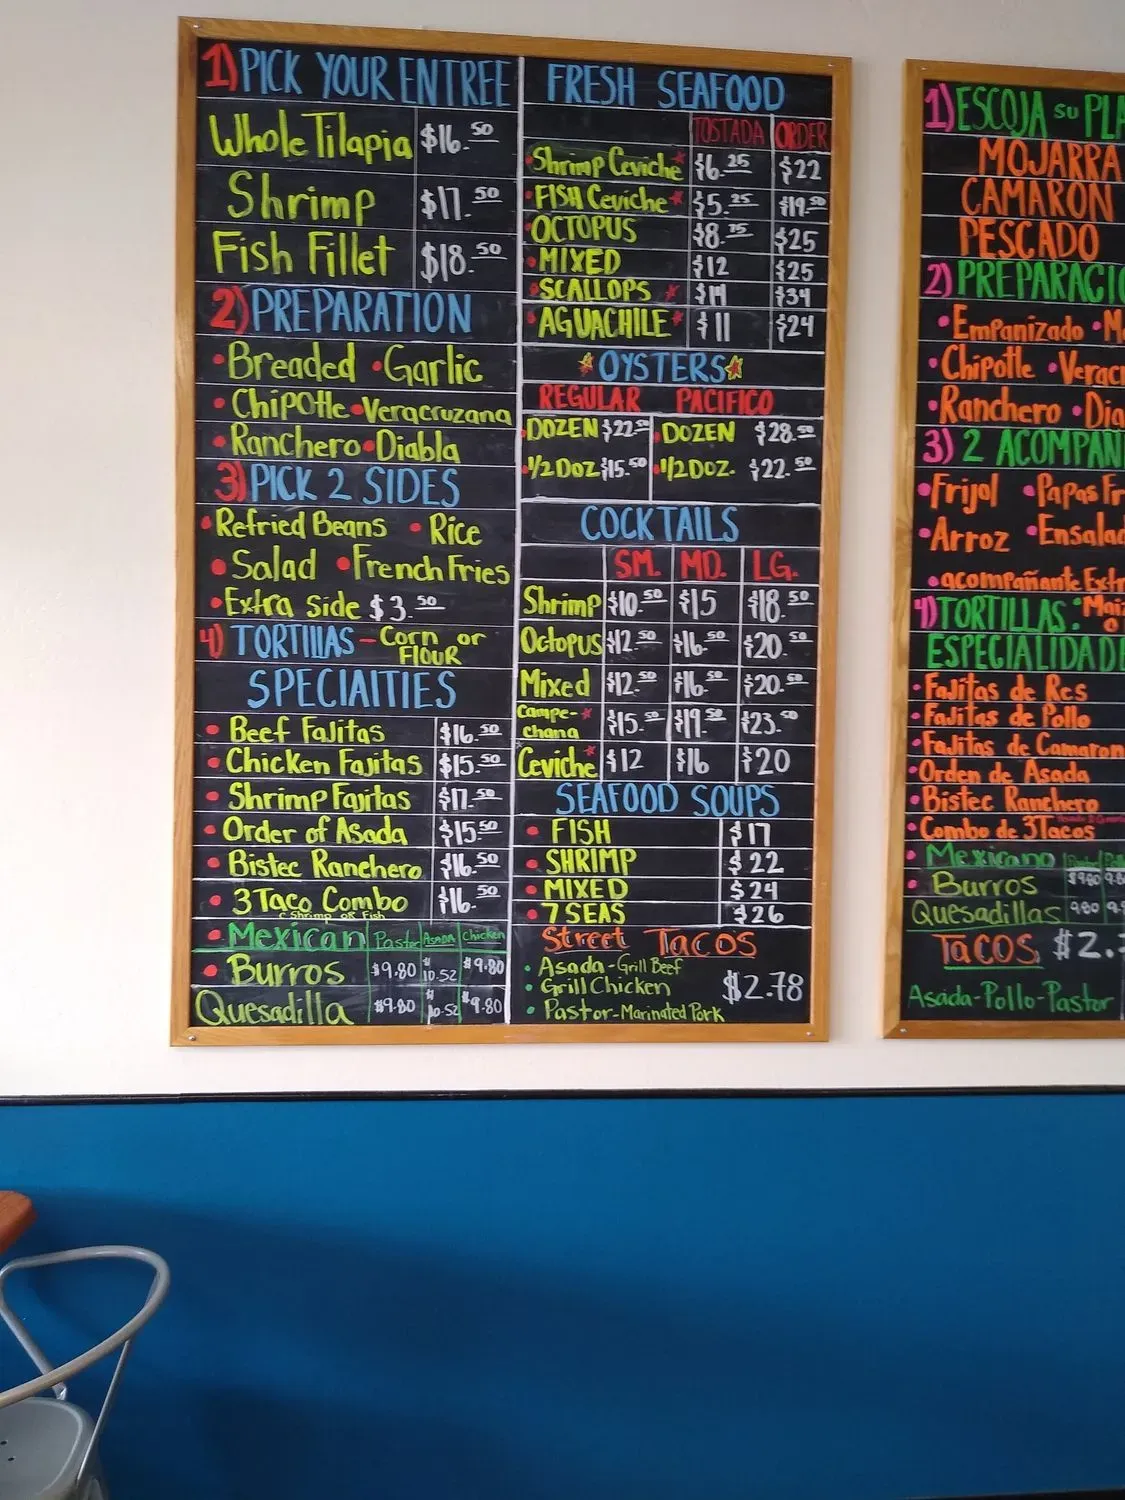 1) PICK YOUR ENTREE
Whole Tilapia $16.50
Shrimp $17.50
Fish Fillet $18.50
2) PREPARATION
• Breaded • Garlic
• Chipotle • Veracruzana
• Ranchero • Diabla
3) PICK 2 SIDES
• Refried Beans • Rice
• Salad • French Fries
• Extra Side $3.50
4) TORTILLAS - Corn or
FLOUR
SPECIALTIES
• Beef Fajitas $16.50
• Chicken Fajitas $15.50
• Shrimp Fajitas $17.50
• Order of Asada $15.50
• Bistec Ranchero $16.50
• 3 Taco Combo $16.50
Shrimp or Fish
• Mexican Pastor ASADA Chicken
• Burros $9.80 $10.52 $9.80
Quesadilla $9.80 $10.52 $9.80
FRESH SEAFOOD
TOSTADA ORDER
• Shrimp Ceviche* $6.25 $22
• FISH Ceviche* $5.25 $19.50
• OCTOPUS $8.75 $25
• MIXED $12 $25
• SCALLOPS * $14 $34
• AGUACHILE* $11 $24
*OYSTERS*
REGULAR PACIFICO
• DOZEN $22.50 • DOZEN $28.50
• 1/2 DOZ $15.50 • 1/2 DOZ. $22.50
COCKTAILS
SM. MD. LG.
Shrimp $10.50 $15 $18.50
Octopus $12.50 $16.50 $20.50
Mixed $12.50 $16.50 $20.50
Campe-*
chana $15.50 $19.50 $23.50
Ceviche* $12 $16 $20
SEAFOOD SOUPS
• FISH $17
• SHRIMP $22
• MIXED $24
• 7 SEAS $26
Street TACOS
• Asada - Grill Beef
• Grill Chicken $2.78
• Pastor - Marinated Pork
1) ESCOJA SU PLA
MOJARRA
CAMARON
PESCADO
2) PREPARACIO
• Empanizado • M
• Chipotle • Veracr
• Ranchero • Dia
3) 2 ACOMPAN
• Frijol • Papas Fr
• Arroz • Ensalad
• acompañante Extr
4) TORTILLAS: • Maiz
o
ESPECIALIDADE
• Fajitas de Res
• Fajitas de Pollo
• Fajitas de Camaron
• Orden de Asada
• Bistec Ranchero
• Combo de 3 Tacos
• Mexicano
• Burros $9.80 9.8
Quesadillas 9.80 9.
TACOS $2.7
Asada-Pollo-Pastor